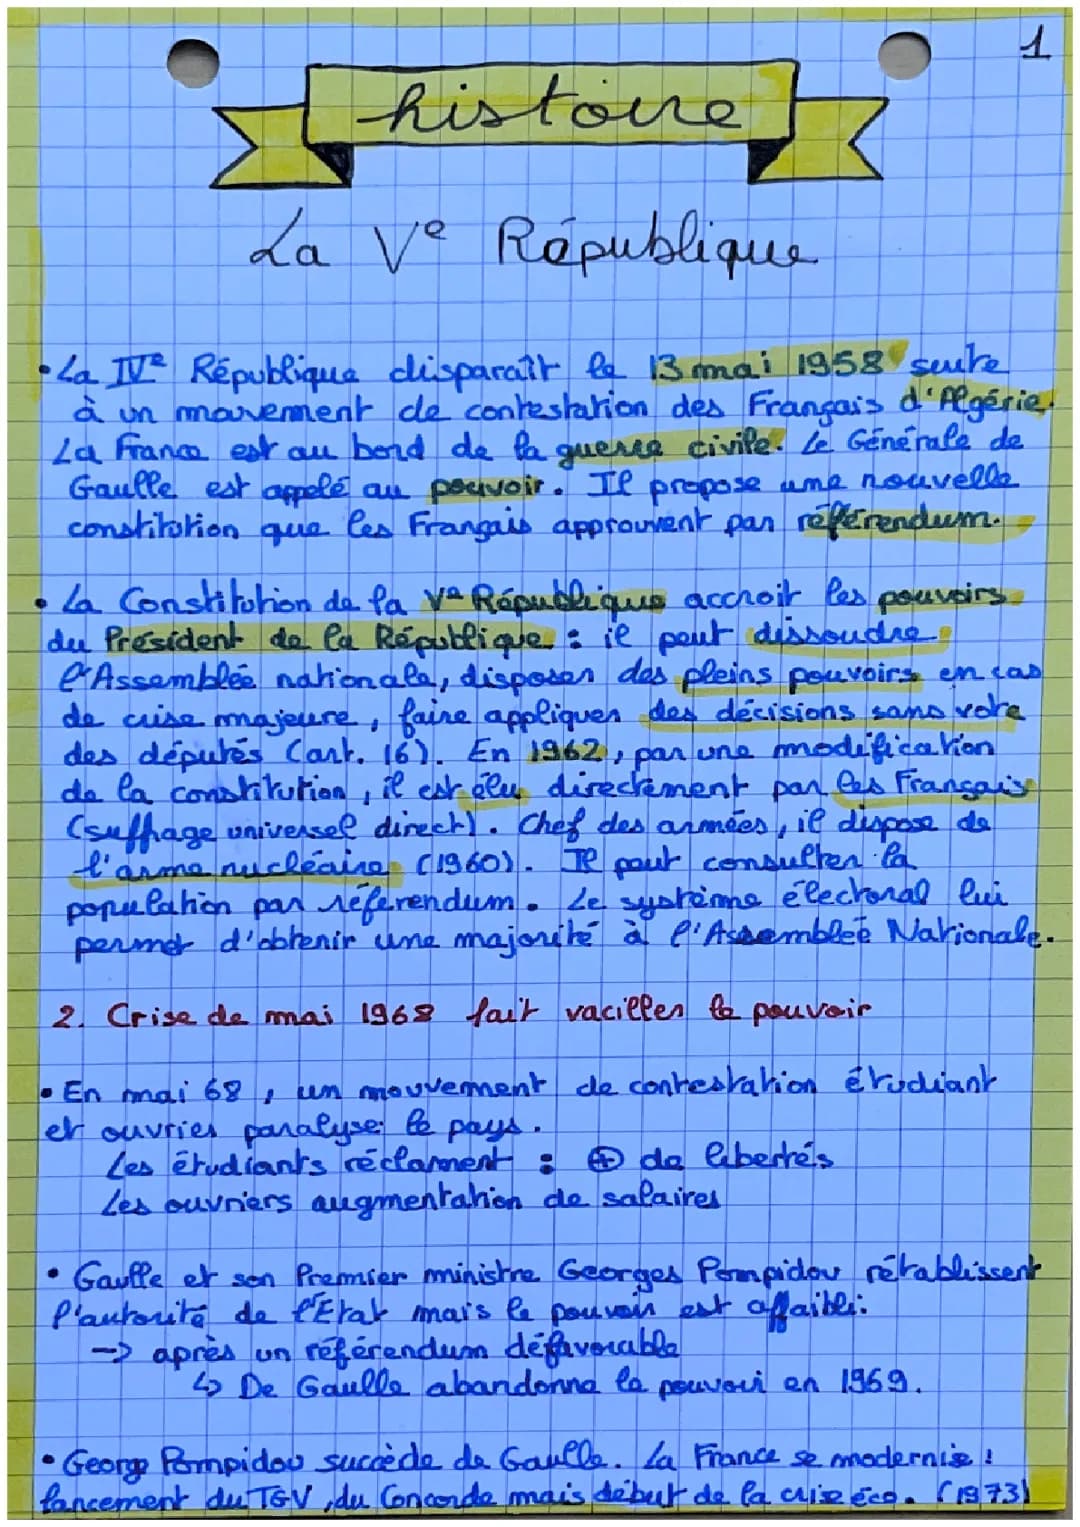 1
histoire
La Ve République
• La IVe République disparaît le 13 mai 1958 suite
à un mouvement de contestation des Français d'Algérie.
La France est au bord de la guerre civile. Le Générale de
Gaulle est appelé au pouvoir. Il propose une nouvelle
constitution que les Français approuvent par référendum.
• La Constitution de la Ve République accroit les pouvoirs
du Président de la République : il peut dissoudre
l'Assemblée nationale, disposer des pleins pouvoirs en cas
de crise majeure, faire appliquer des décisions sans vote
des députés (art. 16). En 1962, par une modification
de la constitution, il est élu directement par les Français
(suffrage universel direct). Chef des armées, il dispose de
l'arme nucléaire (1960). Il peut consulter la
population par référendum. Le système électoral lui
permet d'obtenir une majorité à l'Assemblée Nationale.
2. Crise de mai 1968 fait vaciller le pouvoir
• En mai 68, un mouvement de contestation étudiant
et ouvries paralyse le pays.
Les étudiants réclament : ⊕ de libertés
Les ouvriers augmentation de salaires
• Gaulle et son Premier ministre Georges Pompidou rétablissent
l'autorité de l'État mais le pouvoir est affaibli:
-> après un référendum défavorable
↳ De Gaulle abandonne le pouvoir en 1969.
• George Pompidou succède de Gaulle. La France se modernise :
lancement du TGV, du Concorde mais début de la crise éco. (1973)